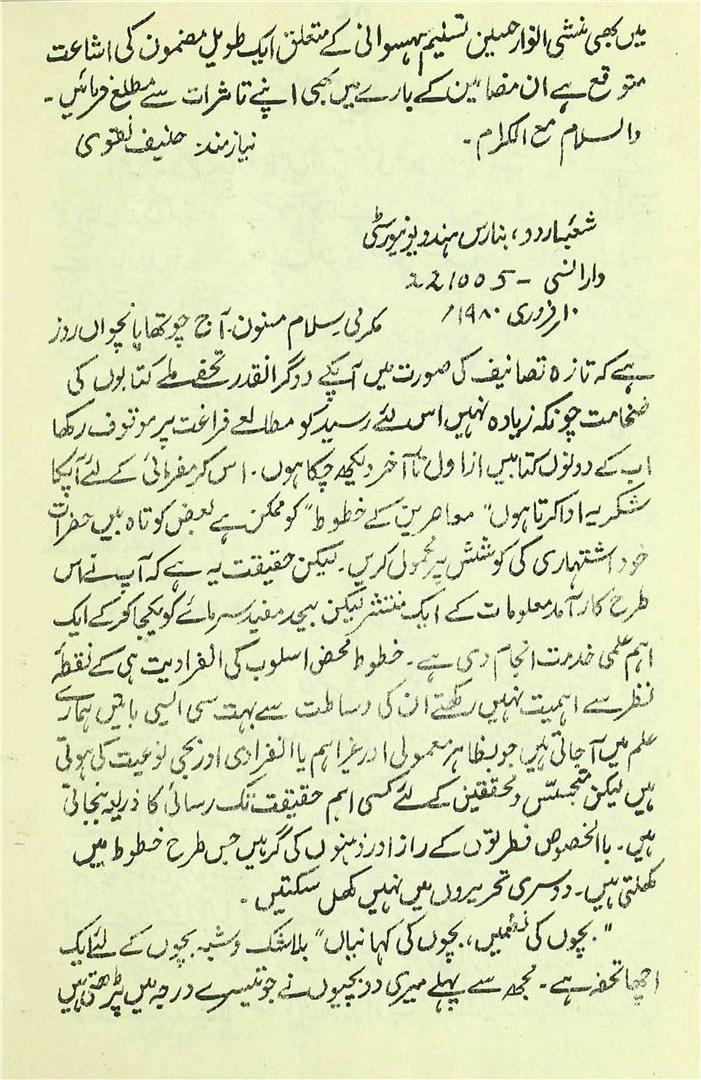 میں بھی منشی انوار حسین تسلیم سہسوانی کے متعلق ایک طویل مضمون کی اشاعت
متوقع ہے ان مضامین کے بارے میں بھی اپنے تاثرات سے مطلع فرمائیں۔
والسلام مع الاکرام۔ نیازمند: حنیف نقوی
شعبۂ اردو، بنارس ہندو یونیورسٹی
وارانسی – 221005
۱۰ر فروری ۱۹۸۰ء مکرمی سلام مسنون۔ آج چوتھا یا پانچواں روز
ہے کہ تازہ تصانیف کی صورت میں آپکے دو گرانقدر تحفے ملے کتابوں کی
ضخامت چونکہ زیادہ نہیں اس لئے رسید کو مطالعے فراغت پر موقوف رکھا
اب کے دونوں کتابیں از اول تا آخر دیکھ چکا ہوں۔ اس کرمفرمائی کے لئے آپکا
شکریہ ادا کرتا ہوں "معاصرین کے خطوط" کو ممکن ہے بعض کوتاہ بیں حضرات
خود اشتہاری کی کوشش پر محمول کریں۔ لیکن حقیقت یہ ہے کہ آپ نے اس
طرح کارآمد معلومات کے ایک منتشر لیکن بیحد مفید سرمائے کو یکجا کر کے ایک
اہم علمی خدمت انجام دی ہے۔ خطوط محض اسلوب کی انفرادیت ہی کے نقطۂ
نظر سے اہمیت نہیں رکھتے ان کی وساطت سے بہت سی ایسی باتیں ہمارے
علم میں آ جاتی ہیں جو بظاہر معمولی اور غیر اہم یا انفرادی اور نجی نوعیت کی ہوتی
ہیں لیکن متجسس و محققین کے لئے کسی اہم حقیقت تک رسائی کا ذریعہ بنجاتی
ہیں۔ بالخصوص نظریوں کے راز اور ذہنوں کی گرہیں جس طرح خطوط میں
کھلتی ہیں۔ دوسری تحریروں میں نہیں کھل سکتیں۔
"بچوں کی نظمیں، بچوں کی کہانیاں" بلاشک و شبہ بچوں کے لئے ایک
اچھا تحفہ ہے۔ مجھ سے پہلے میری دو بچیوں نے جو تیسرے درجہ میں پڑھتی ہیں